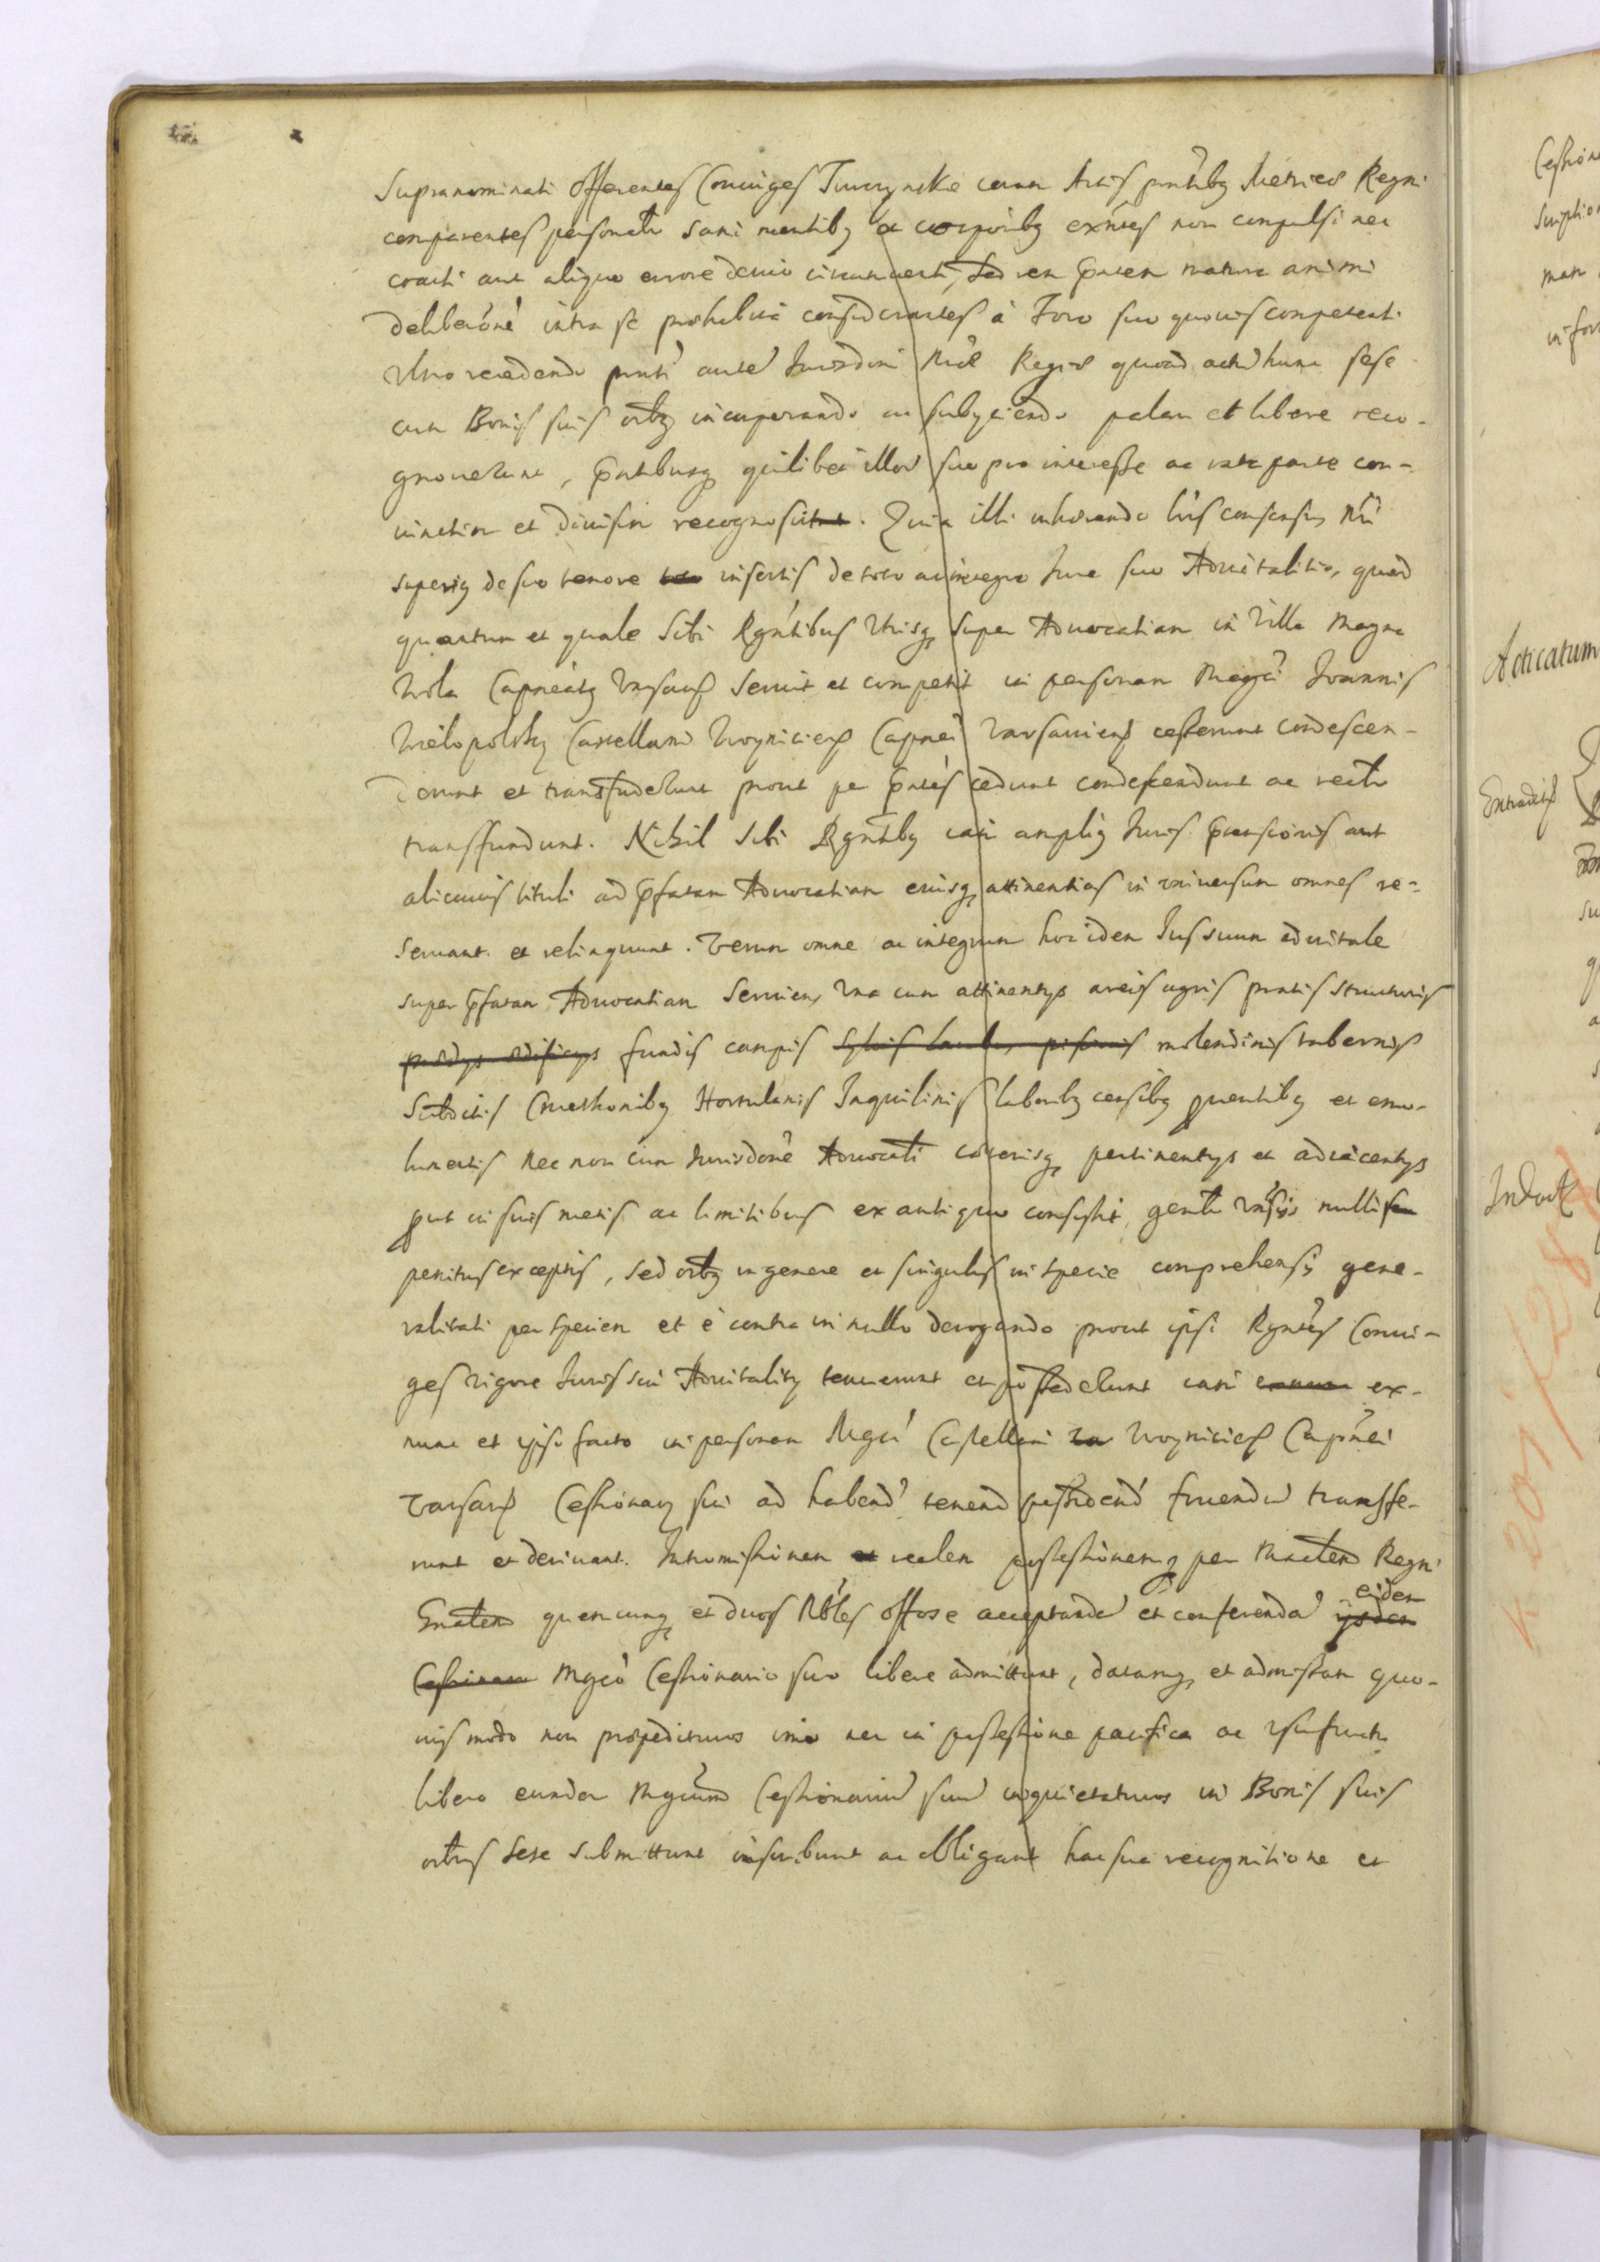 Supranominati offerentes Coniuges Turzynskie coram Actis pntibq Metrices Regni
comparentes personalr sani mentibq ac corporibq exntes non compulsi nec
coacti aut aliquo errore devio circumventi, sed rem pntem matura animi
deliberone intra se prohabita considerantes à Foro suo quovis competenti
recedendo pnti autem Jurisdoni Regiæ quoad actum hunc sese
cum Bonis suis oibq incorporando ac subyciendo palam et libere reco-
gnoverunt, pntibusq quilibet illor suo pro interesse ac rata parte con-
iunctim et divisim recognoscunt. Quia illi inhærendo lris consensus Nri
superiq de suo tenore insertis de toto ac integro Jure suo Advitalitio, quod
quantum et quale Sibi Rgntibus Utrisq super Advocatiam in Villa Magna
Wola Capneatq Varsavi servit et competit in personam Magci Joannis
Wielopolsky Castellani Woyniciens Capnei Varsaviens cesserunt condescen-
derunt et transfuderunt prout per pntes cedunt condescendunt ac realr
transfundunt. Nihil Sibi Rgntibq iam ampliq Juris prætensionis aut
alicuius tituli ad pfatam Advocatiam eiusq attinentias in universum omnes re-
servant et relinquunt. Verum omne ac integrum hoc idem Jus suum advitale
super pfatam Advocatiam serviens Una cum attinentys areis agris pratis structuris
prædys ædificys fundis campis sylvis piscinis molendinis tabernis
Subditis Cmethonibq Hortulanis Inquilinis laboribq censibq proventibq et emo-
lumentis nec non cum Jurisdone Advocati cæterisq pertinentys et adiacentys
prout in suis metis ac limitibus ex antiquo consistit, genlr vnsis nullis
penitus exceptis, sed oibq in genere et singulis in specie comprehensis gene-
ralitati per speciem et è contra in nullo derogando prout ipsi Rgntes Coniu-
ges vigore Juris sui Advitalitq tenuerunt et possederunt iam ex-
nunc et ipso facto in personam Mgci Castellani Woyniciens Capnei
Varsavi Cessionarq sui ad habend tenend possidend fruendum transfe-
runt et derivant. Intromissionem et realem possessionemq per Mnlem Regni
Gnalem quemcunq et duos Nobles offose acceptanda et conferenda eidem
Mgco Cessionario suo libere admittunt, datamq et admissam quo-
vis modo non præpedituros imo nec in possessione pacifica ac usufructu
libero eundem Mgcum Cessionarium suum inquietaturos in Bonis suis
oibus sese submittunt inscribunt ac obligant hac sua recognitione et
Acticatum
Extradit
Induct